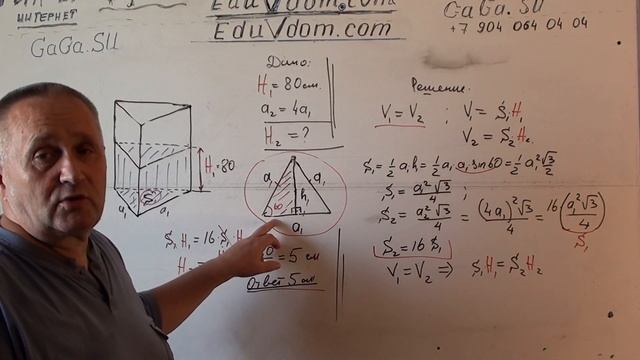 ИНТЕРНЕТ
GaGa.SU
EduVdom.com
EduVdom.com
GaGa.SU
+7 904 064 04 04
Дано:
H₁ = 80 см.
a₂ = 4a₁
H₂ = ?
Решение:
V₁ = V₂ ; V₁ = S₁H₁
V₂ = S₂H₂
S₁ = ½ a₁h = ½ a₁ a₁ sin 60 = ½ a₁² √3/2
S₁ = a₁²√3/4 ;
S₂ = a₂²√3/4 = (4a₁)²√3/4 = 16(a₁²√3/4)
S₁
S₂ = 16 S₁
V₁ = V₂ ⇒ S₁H₁ = S₂H₂
H₁ = 80
S
a₁ a₁
a₁ a₁
60 h
a₁
S₁H₁ = 16 S₁ H
= 5 см
Ответ 5 см